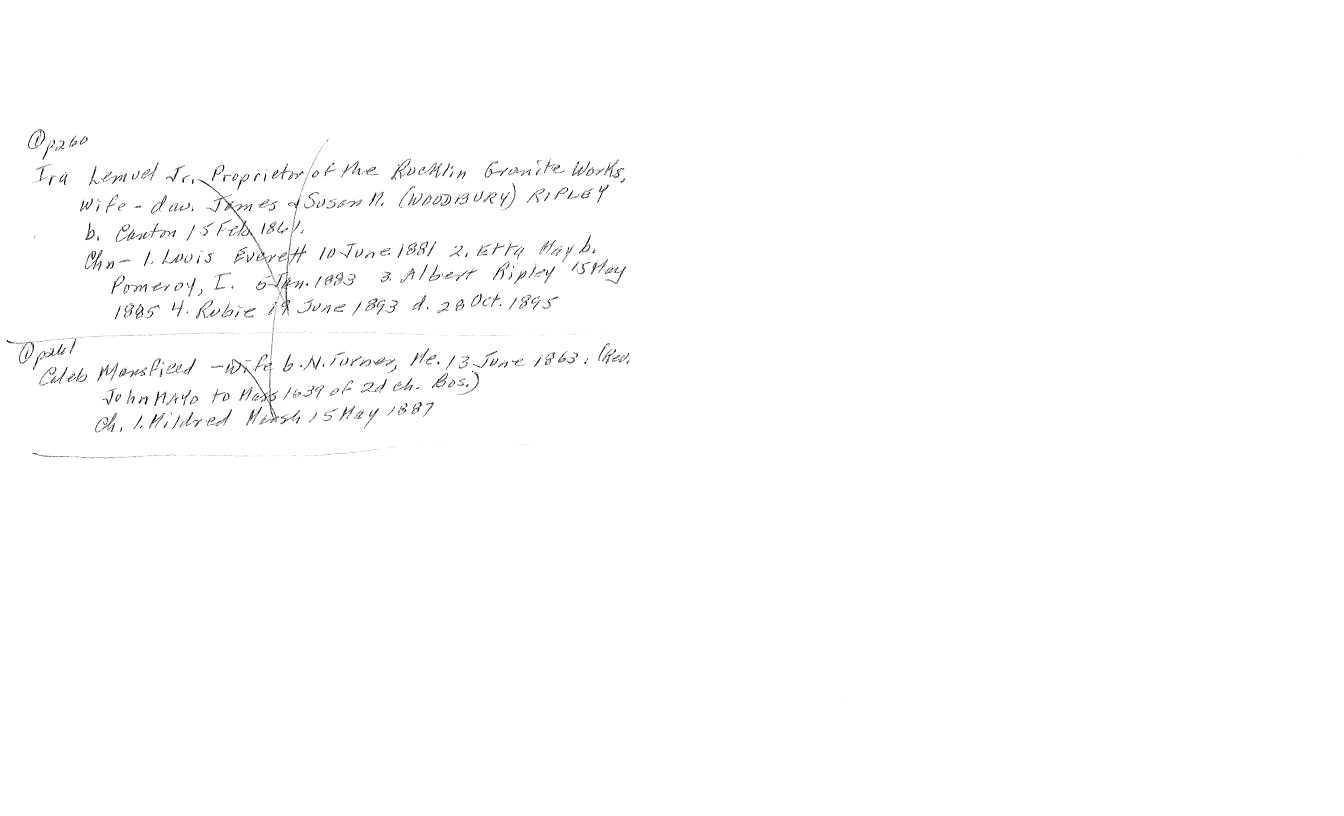 ① p260
Ira Lemuel Jr. Proprietor of the Rocklin Granite Works,
Wife - dau. James & Susan M. (WOODBURY) RIPLEY
b. Canton 15 Feb 1861.
Chn - 1. Louis Everett 10 June 1881 2. Etta May b.
Pomeroy, I. 5 Jan. 1883 3. Albert Ripley 15 May
1885 4. Rubie 19 June 1893 d. 28 Oct. 1895
① p261
Caleb Mansfield - Wife b. N. Turner, Me. 13 June 1863: (Rev.
John MAYO to Mass 1639 of 2d ch. Bos.)
Ch. 1. Mildred Marsh 15 May 1887